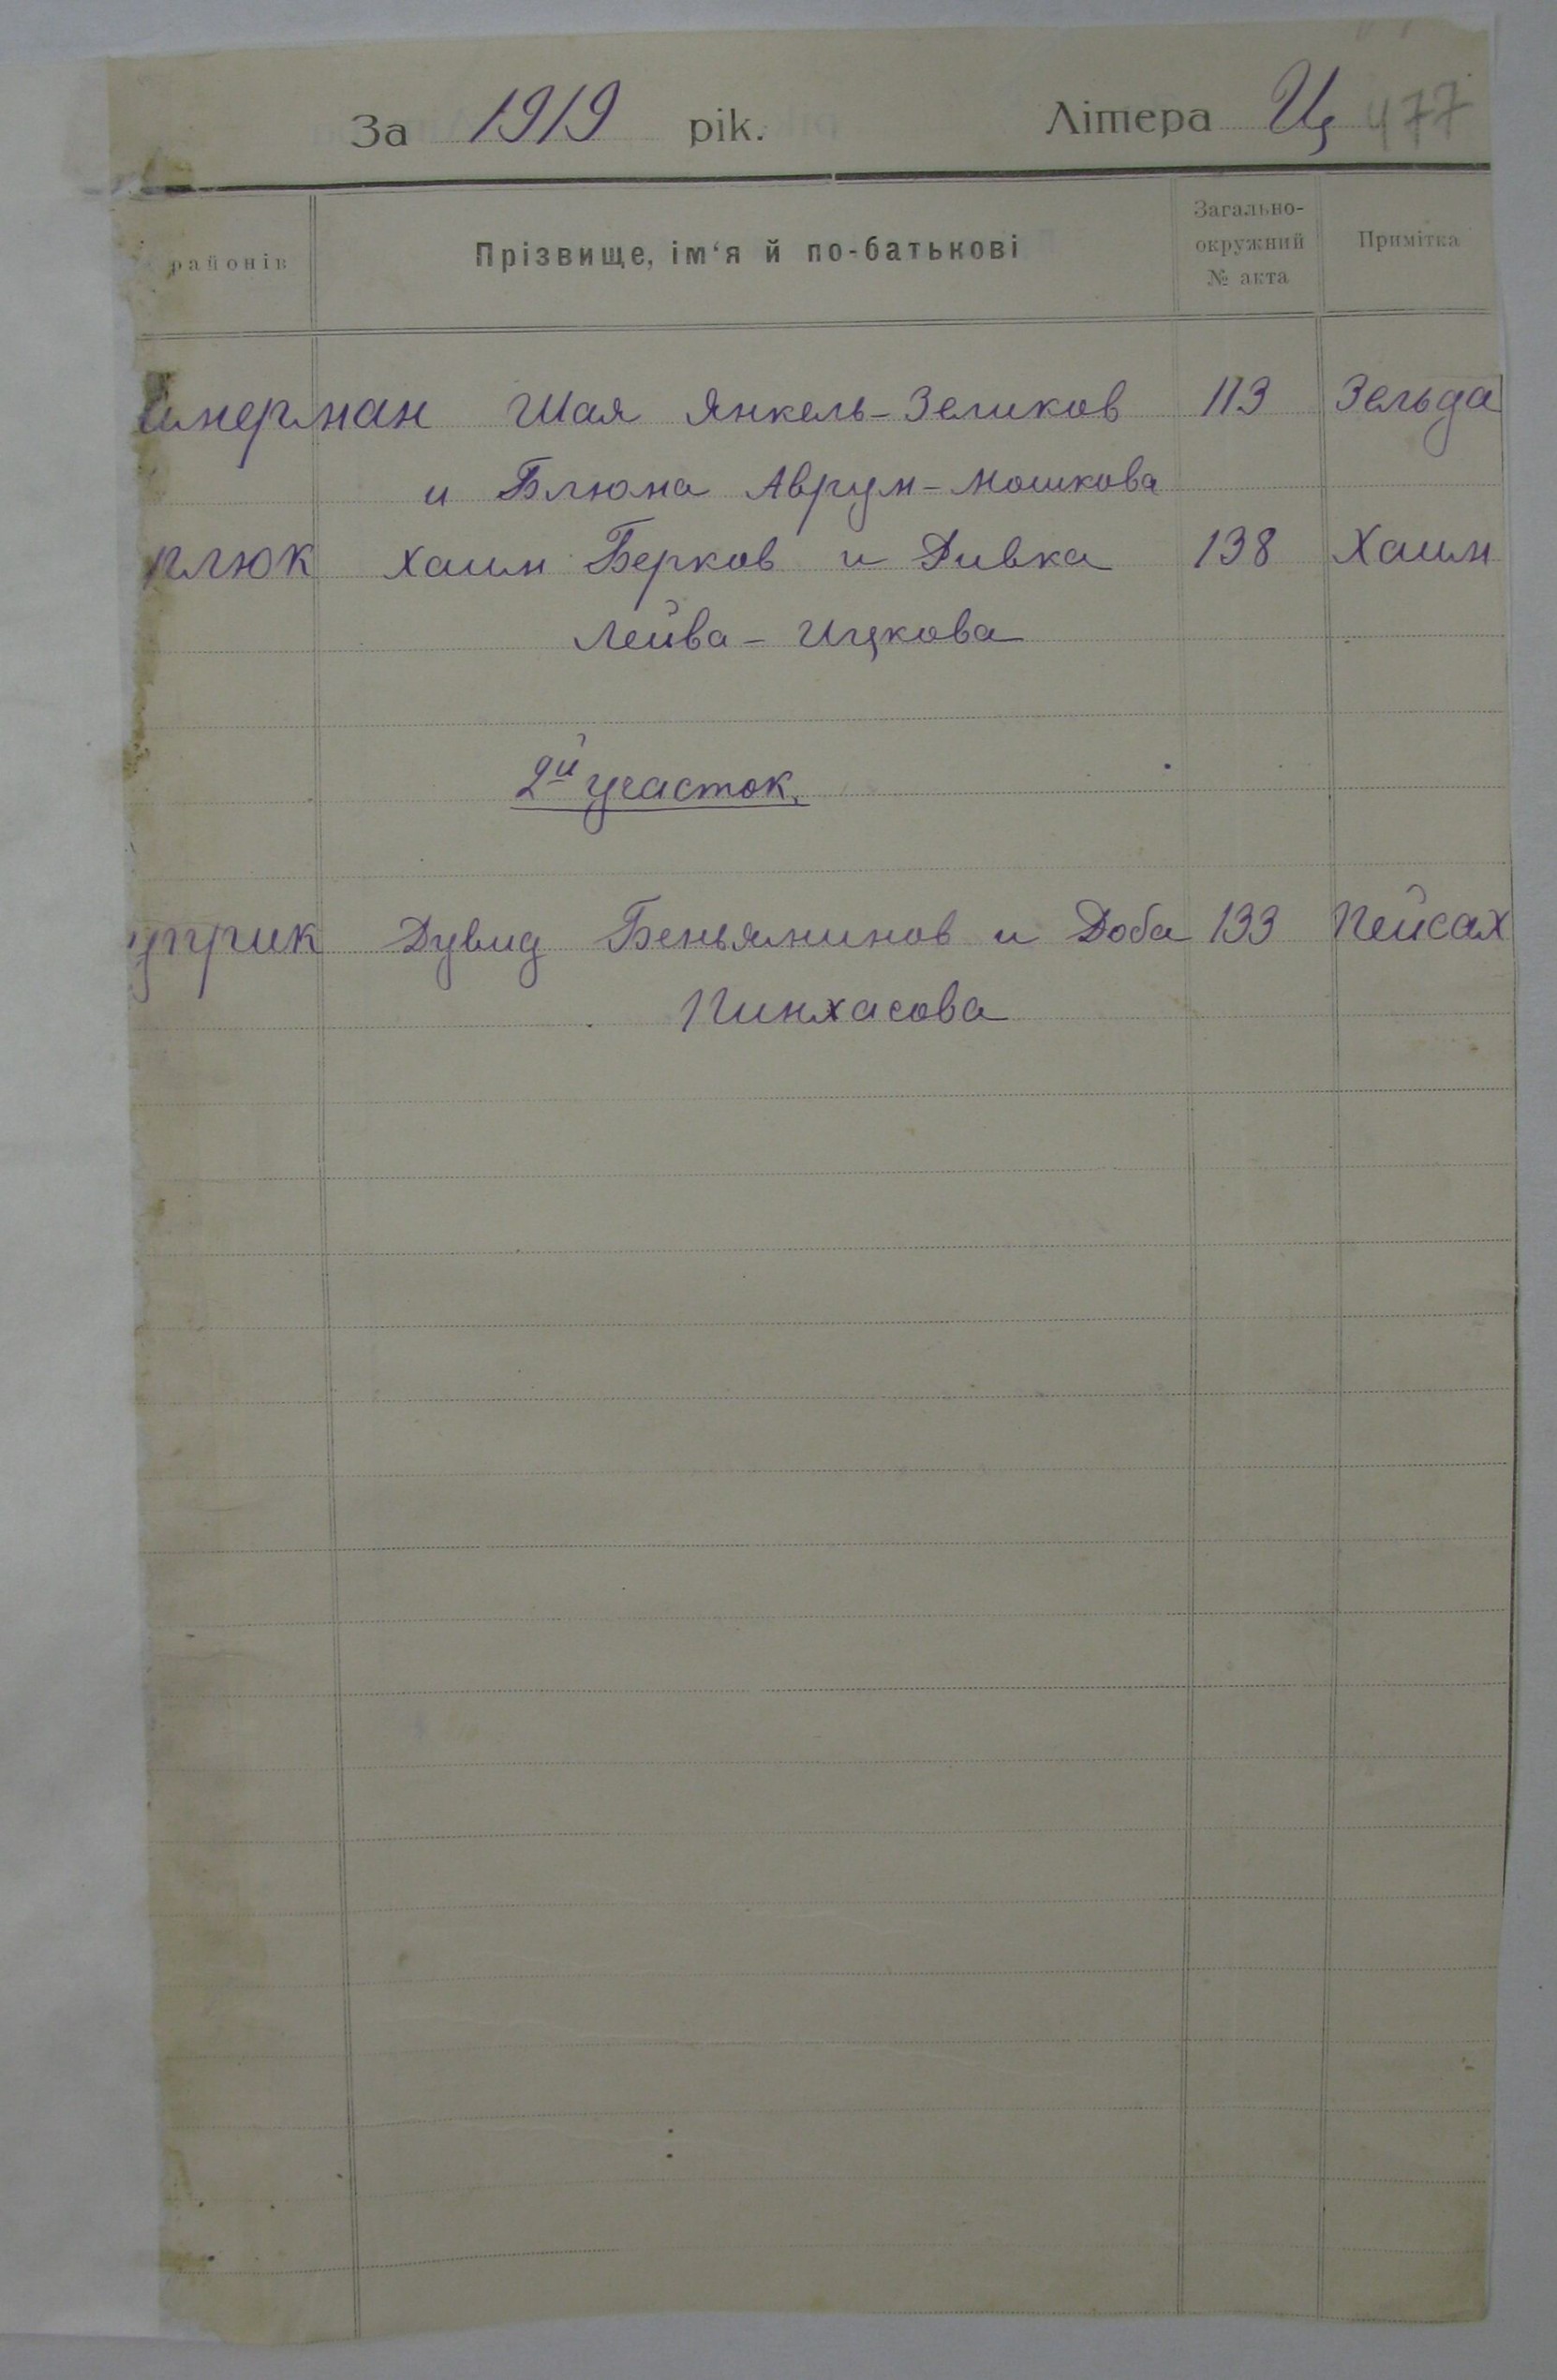 За 1919 рік. Літера Ц 477
районів Прізвище, ім‘я й по-батькові Загально-окружний № акта Примітка
имерман Шая Янкель-Зеликов 113 Зельда
и Блюма Аврум-Мошкова
плюк Хаим Берков и Ривка 138 Хаим
Лейва-Ицкова
2й участок.
уприк Дувид Беньяминов и Доба 133 Пейсах
Пинхасова